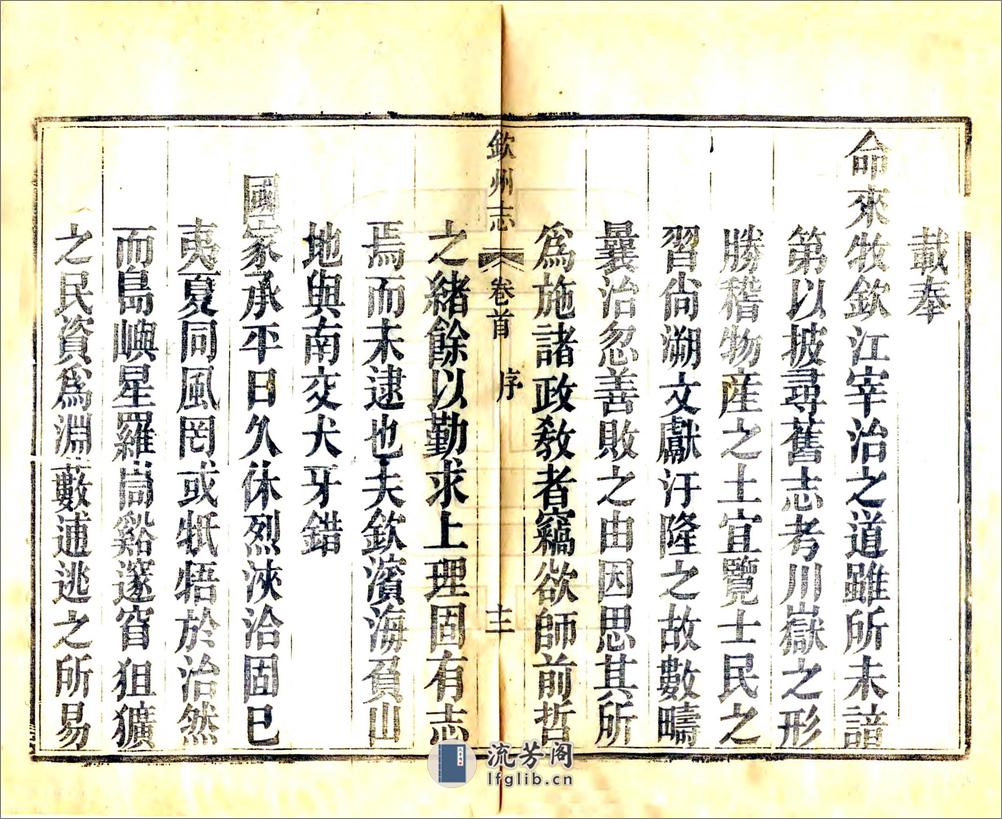 載奉
命來牧欽江宰治之道雖所未諳
第以披尋舊志考川嶽之形
勝稽物産之土宜覽士民之
習尙溯文獻汙隆之故數疇
曩治忽善敗之由因思其所
爲施諸政教者竊欲師前哲
欽州志 卷首 序 十一
之緒餘以勤求上理固有志
焉而未逮也夫欽濱海負山
地與南交犬牙錯
國家承平日久休烈浹洽固已
夷夏同風罔或牴牾於治然
而島嶼星羅崗谿邃窅狙獷
之民資爲淵藪逋逃之所易
流芳阁
lfglib.cn